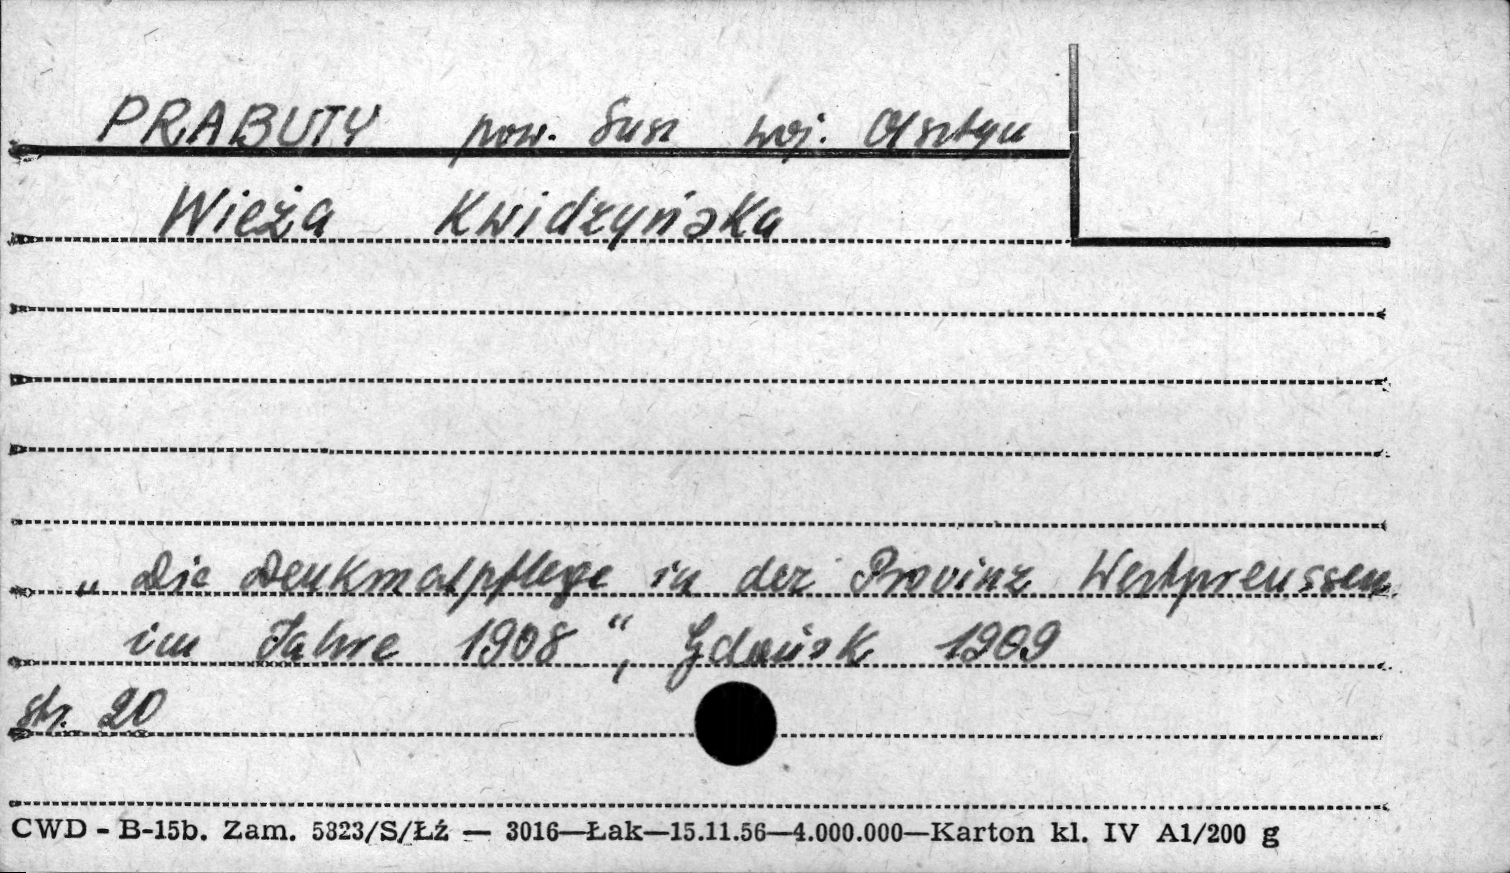 PRABUTY pow. Susz woj. Olsztyn
Wieża Kwidzyńska
„Die Denkmalpflege in der Provinz Westpreussen
im Jahre 1908“, Gdańsk 1909
str. 20
CWD - B-15b. Zam. 5823/S/Łź — 3016—Łak—15.11.56—4.000.000—Karton kl. IV A1/200 g